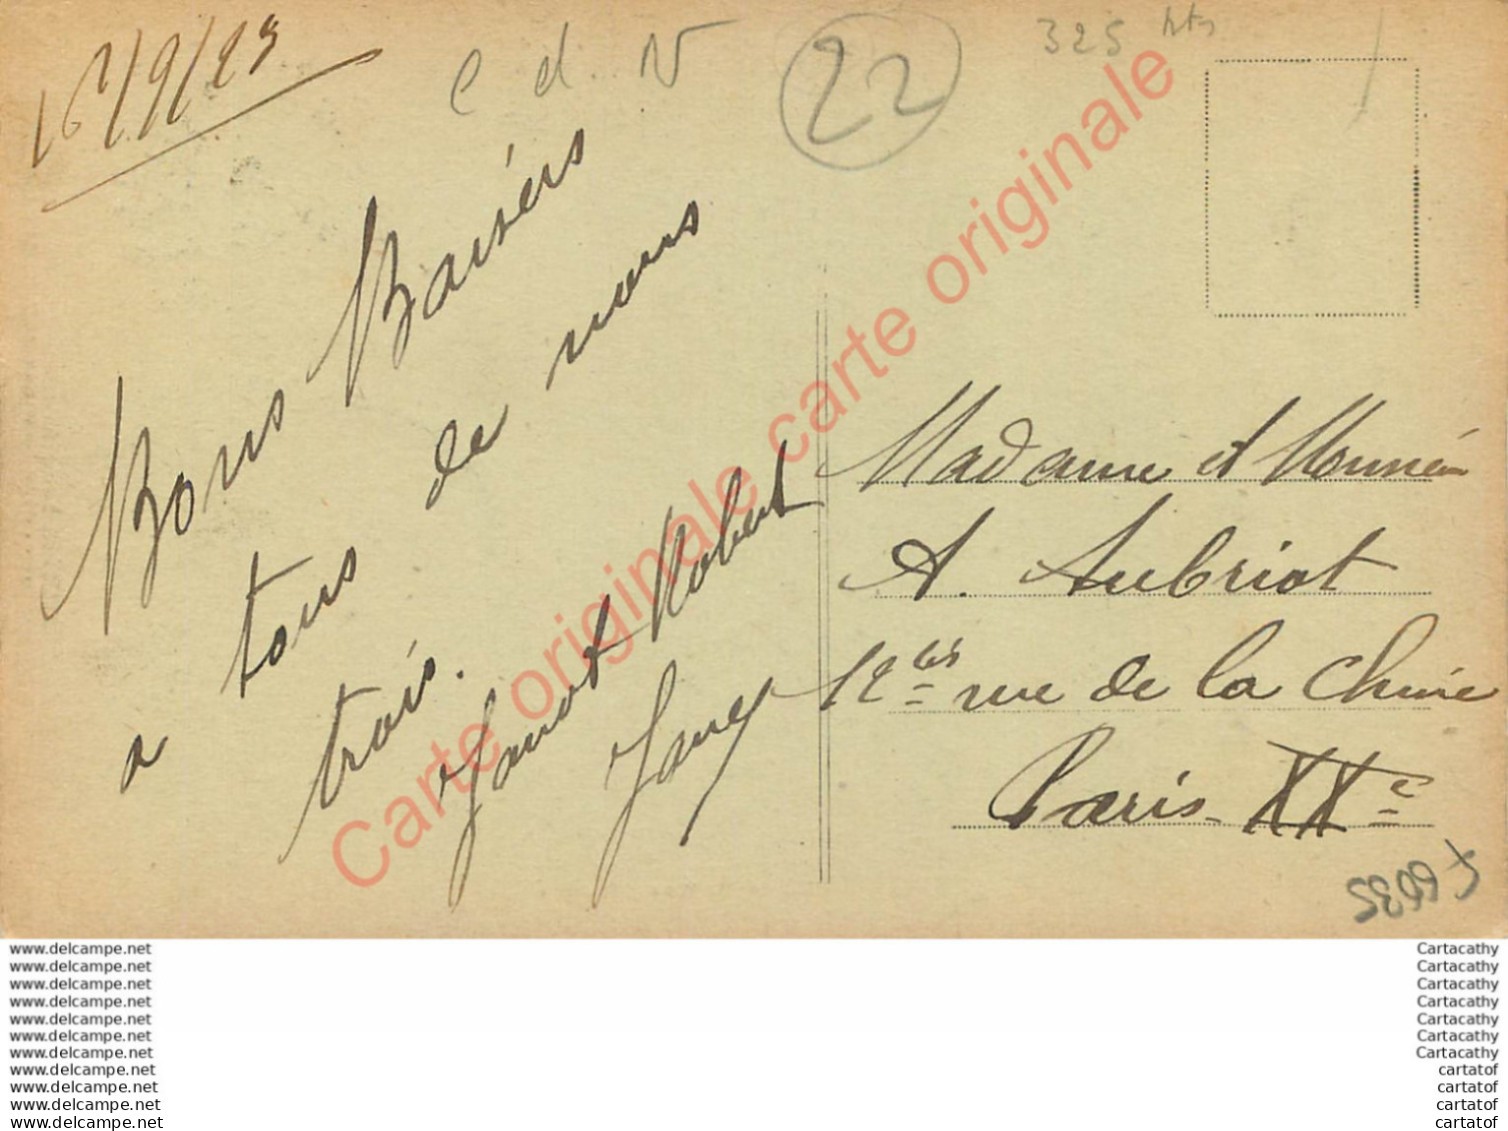 16/9/23
C d. N
22
325 hts
Bons Baisers
a tous de nous
trois.
Janot Robert
Madame et Monsieur
A. Aubriot
12 bis rue de la Chine
Paris XXe
Carte originale carte originale
www.delcampe.net
www.delcampe.net
www.delcampe.net
www.delcampe.net
www.delcampe.net
www.delcampe.net
www.delcampe.net
www.delcampe.net
www.delcampe.net
www.delcampe.net
www.delcampe.net
Cartacathy
Cartacathy
Cartacathy
Cartacathy
Cartacathy
Cartacathy
Cartacathy
cartatof
cartatof
cartatof
cartatof